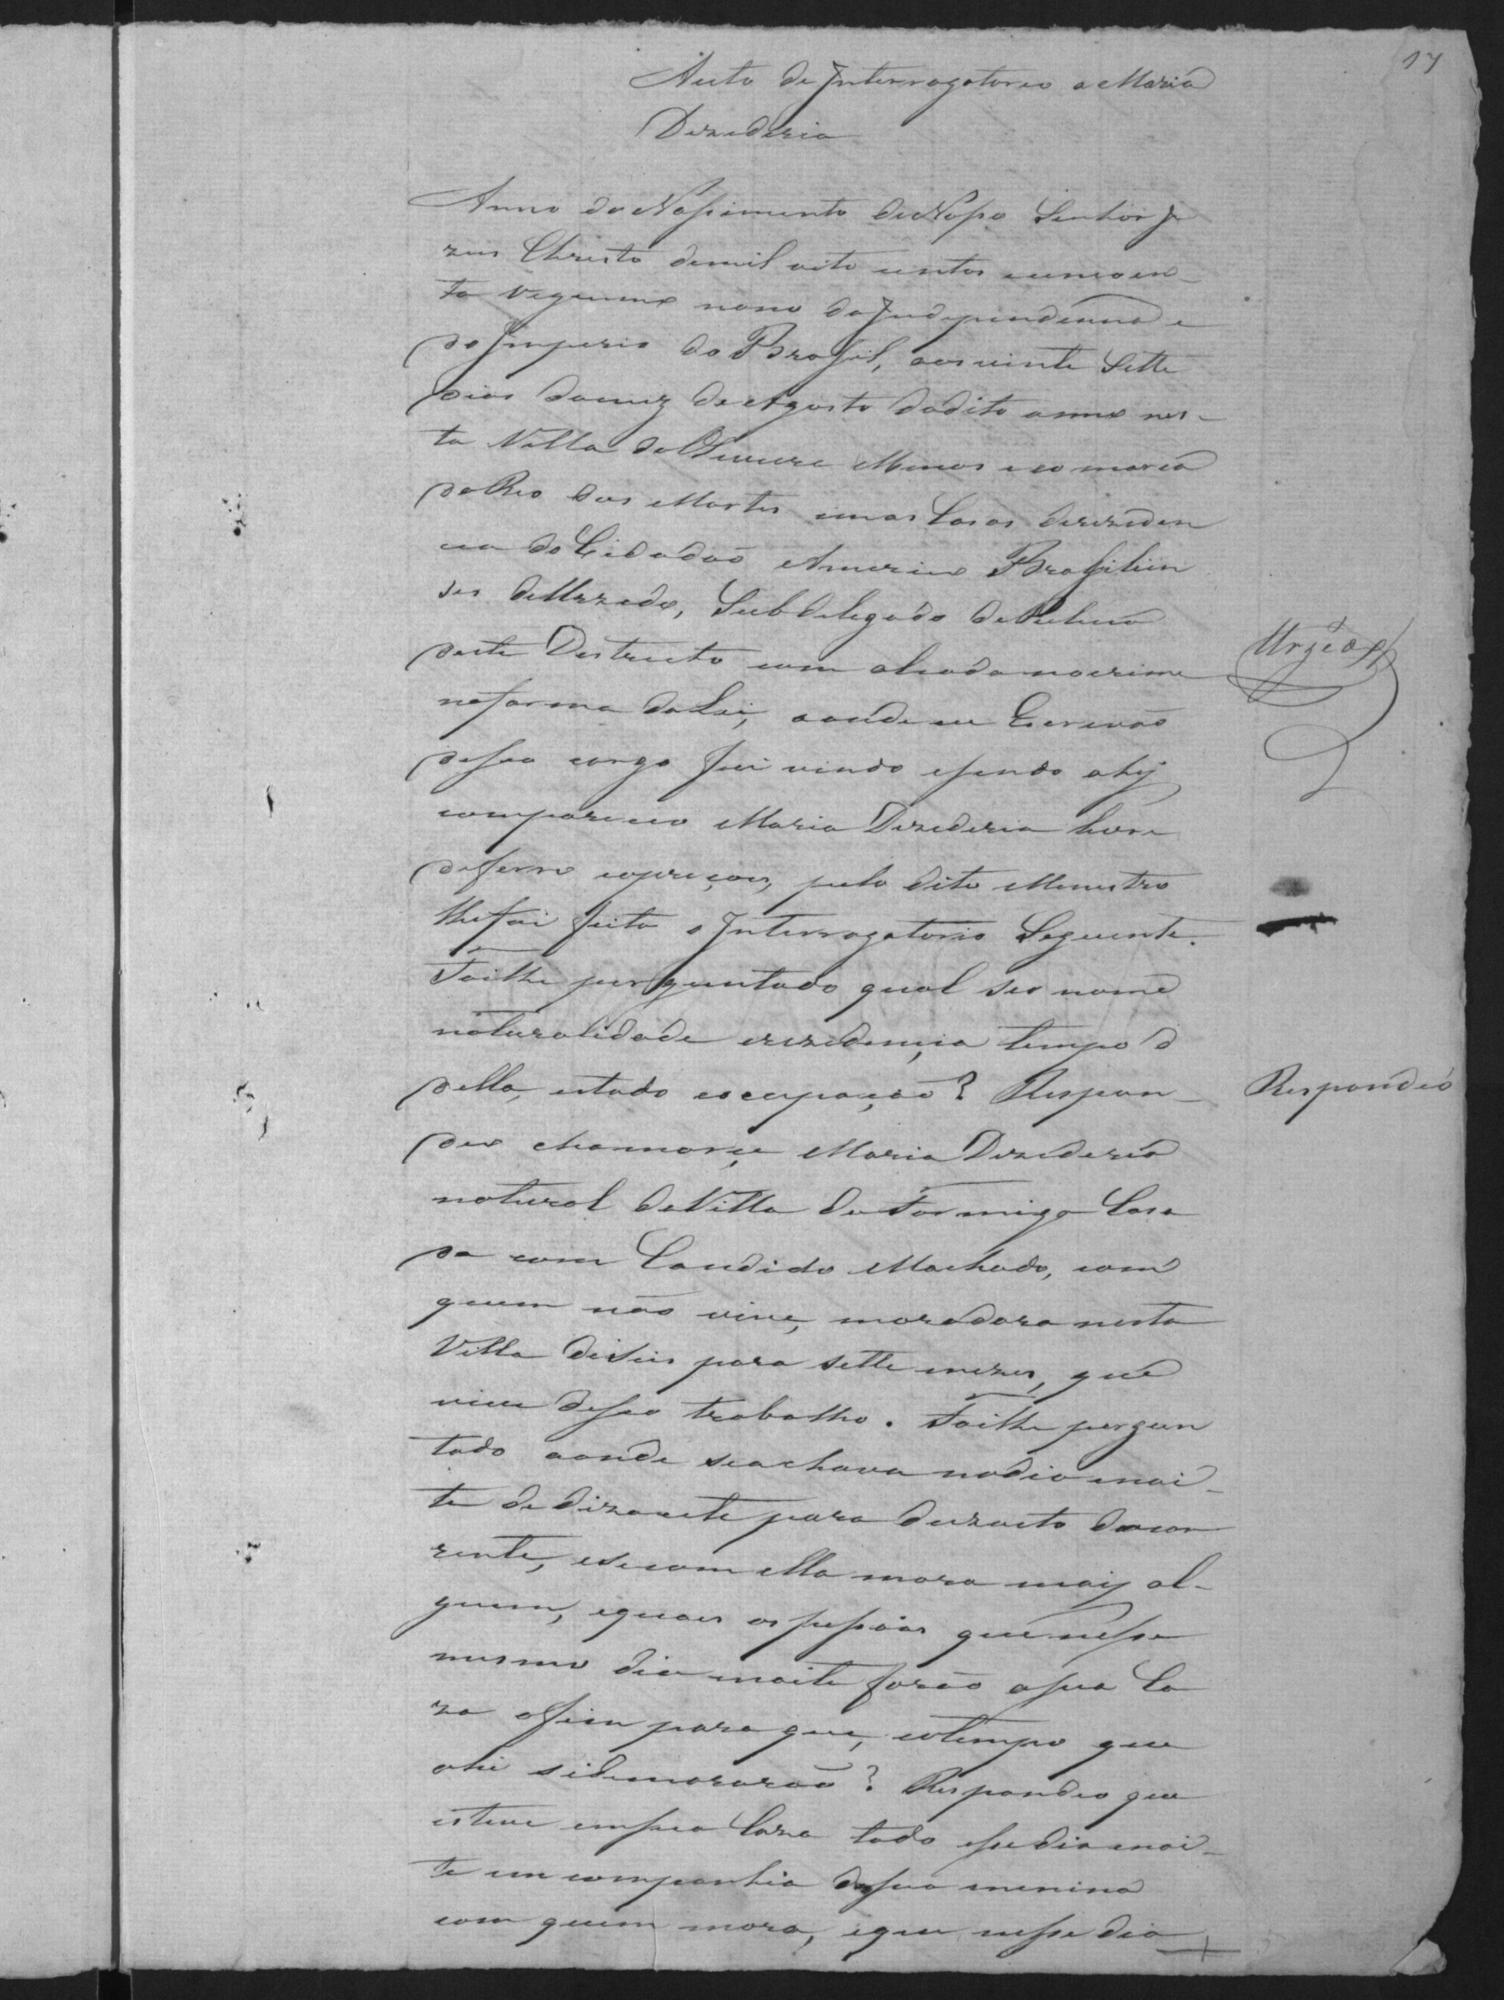 17
Auto de Interrogatorio a Maria
Dezederia
Anno do Nassimento de Nosso Senhor Je
zus Christo de mil oito centos e cincoen-
ta vegecimo nono da Independencia e
do Imperio do Brasil, aos vinte Sette
dias do mez de Agosto do dito anno nes-
ta Villa de Oliveira Minas e comarca
do Rio das Mortes em as Casas de rezeden
cia do Cidadão Americo Brasilien
ses de Urzedo, Subdelegado de Policia
deste Destricto com alsada no crime
Urzedo
na forma da Lei, aonde eu Escrivão
de seo cargo fui vindo e sendo ahÿ
compareceo Maria Dezederia livre
de ferro e oprições, pelo dito Menistro
lhe foi feito o Interrogatorio Seguinte.
Foilhe perguntado qual seo nome
naturalidade e rezedencia, tempo d
della, estado e ocupação? Respon-
Respondeo
deo chamarçe Maria Dezederia
natural da Villa da Formiga Casa
da com Candido Machado, com
quem não vive, moradora nesta
Villa de seis para sette mezes, que
vive de seo trabalho. Foilhe pergun
tado aonde se achava no dia e noi-
te de dizacete para dezoito do cor
rente, e se com ella mora maÿ al-
guem, e quaes as pessoas que nesse
mesmo dia e noite forão a sua Ca
za assim para que, e o tempo que
ahi se demorarão? Respondeo que
esteve em sua Caza todo esse dia e noi-
te em companhia de sua menina
com quem mora, e que nesse dia